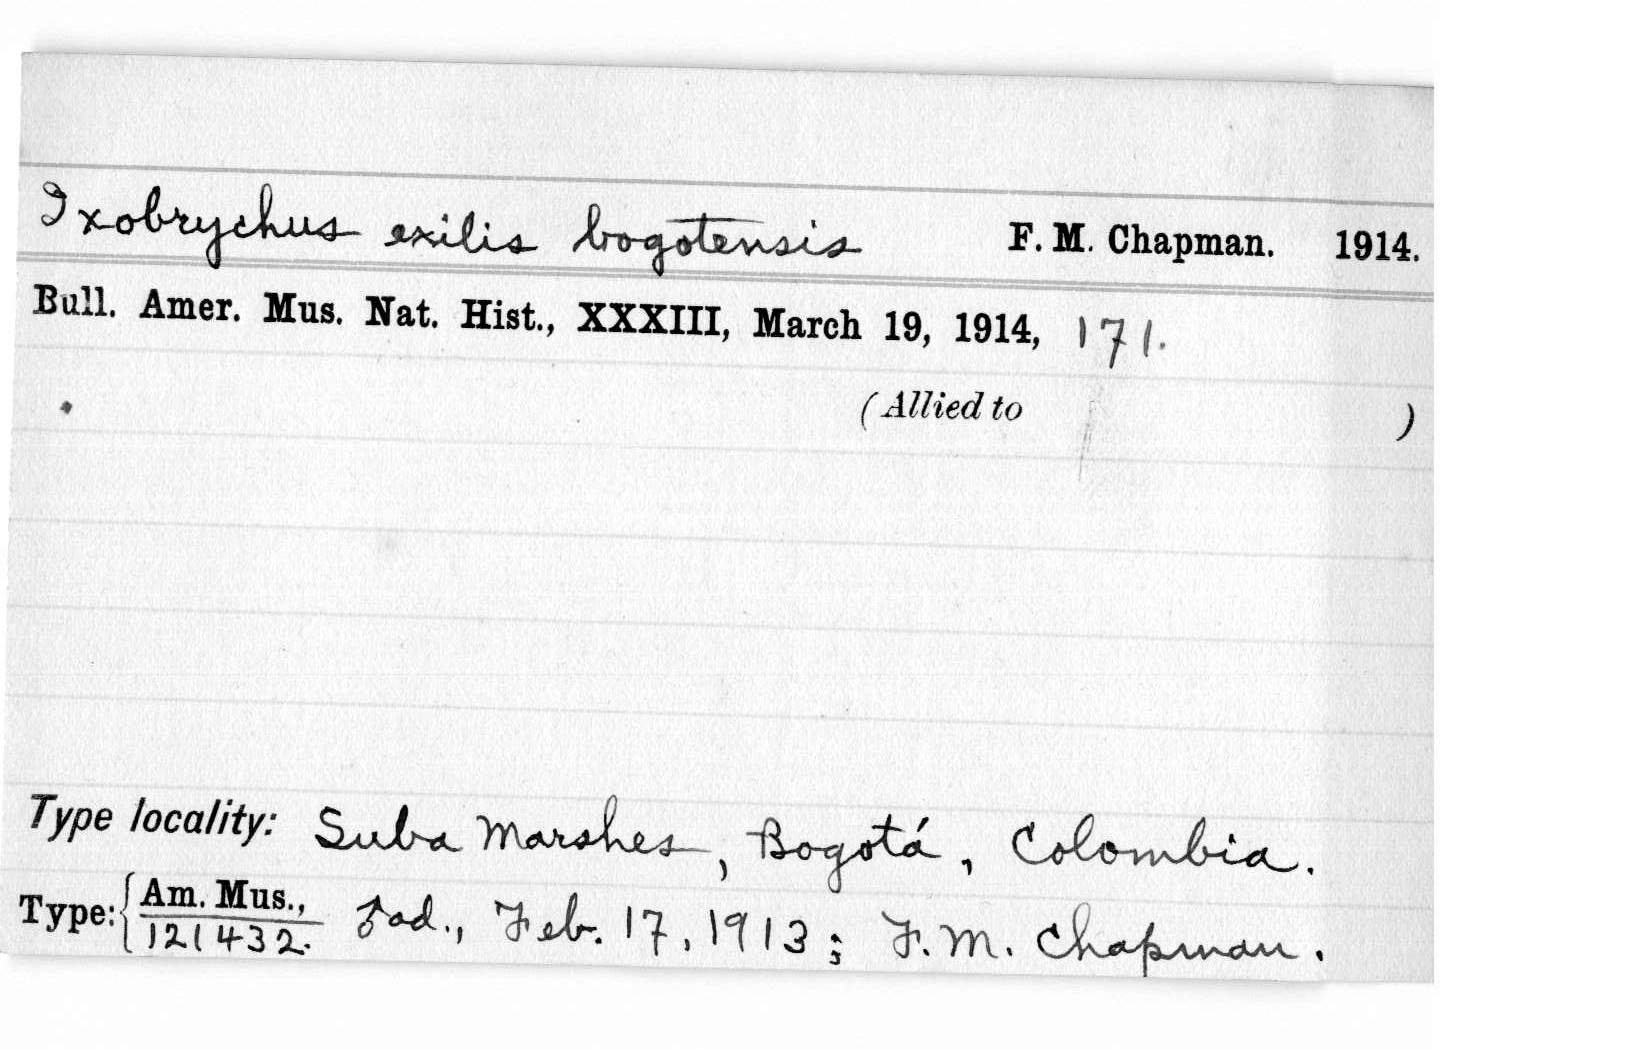 Ixobrychus exilis bogotensis F. M. Chapman. 1914.
Bull. Amer. Mus. Nat. Hist., XXXIII, March 19, 1914, 171.
(Allied to )
Type locality: Suba Marshes, Bogotá, Colombia.
Type: { Am. Mus., 121432. ♂ ad., Feb. 17, 1913; F. M. Chapman.